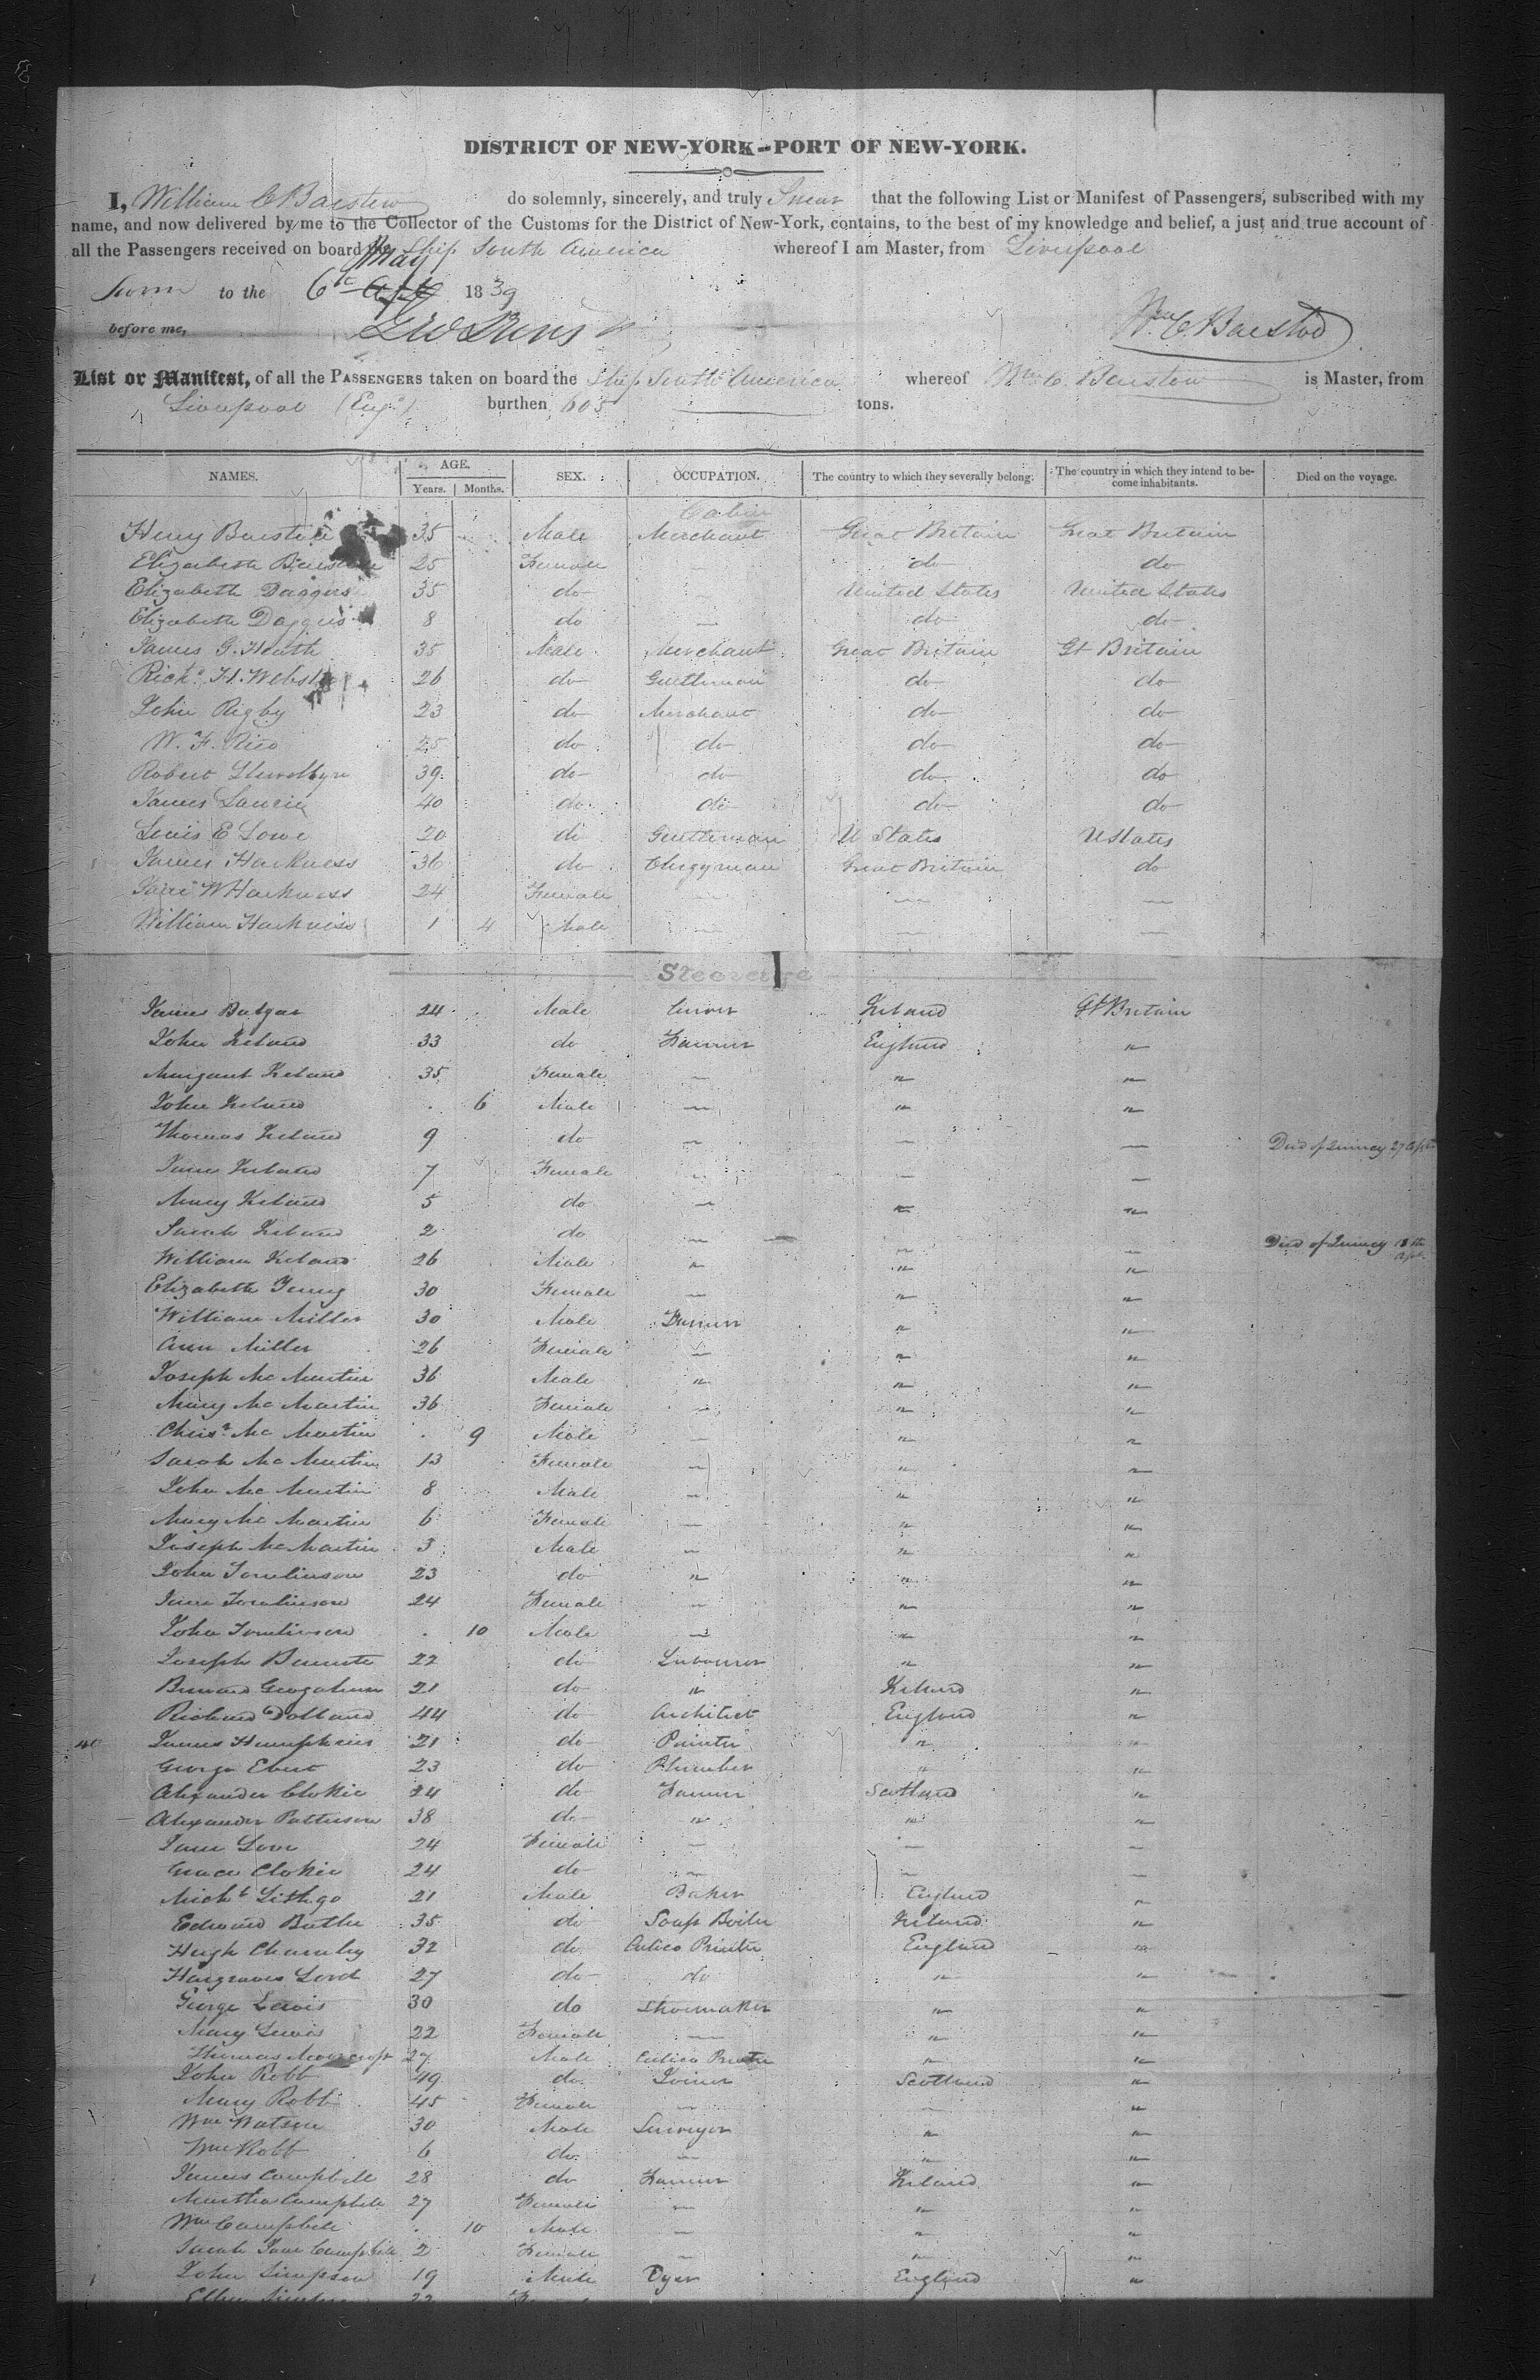 DISTRICT OF NEW-YORK--PORT OF NEW-YORK.
I, William C Barstow do solemnly, sincerely, and truly Swear that the following List or Manifest of Passengers, subscribed with my
name, and now delivered by me to the Collector of the Customs for the District of New-York, contains, to the best of my knowledge and belief, a just and true account of
all the Passengers received on board the Ship South America whereof I am Master, from Liverpool
Sworn to the 6th May 1839
before me,
Wm C. Barstow
List or Manifest, of all the PASSENGERS taken on board the Ship South America whereof Wm C. Barstow is Master, from
Liverpool (Eng.) burthen 605 tons.
NAMES. AGE. SEX. OCCUPATION. The country to which they severally belong. The country in which they intend to become inhabitants. Died on the voyage.
Years. Months.
Cabin
Henry Barstow 35 Male Merchant Great Britain Great Britain
Elizabeth Barstow 25 Female — do do
Elizabeth Daggers 35 do — United States United States
Elizabeth Daggers 8 do — do do
James G. Heath 35 Male Merchant Great Britain Gt Britain
Richd H. Webster 26 do Gentleman do do
John Rigby 23 do Merchant do do
W. F. 25 do do do do
Robert Llewellyn 39 do do do do
James Laurie 40 do do do do
Louis E Lowe 20 do Gentleman U States U States
James Harkness 36 do Clergyman Great Britain do
Jane W Harkness 24 Female — — —
William Harkness 1 4 Male — — —
Steerage
James 24 Male Ireland Gt Britain
John Ireland 33 do Farmer England "
Margaret Ireland 35 Female — " "
John Ireland 6 Male — " "
Thomas Ireland 9 do — — — Died of Quincy 27 Apl
Jane Ireland 7 Female — — —
Mary Ireland 5 do — " "
Sarah Ireland 2 do — — — Died of Quincy Apl
William Ireland 26 Male " " "
Elizabeth 30 Female — " "
William Miller 30 Male Farmer " "
Ann Miller 26 Female — " "
Joseph Mc Martin 36 Male " " "
Mary Mc Martin 36 Female — " "
Chrisr Mc Martin 9 Male — " "
Sarah Mc Martin 13 Female — " "
John Mc Martin 8 Male — " "
Mary Mc Martin 6 Female — " "
Joseph Mc Martin 3 Male — " "
John Tomlinson 23 do " " "
Jane Tomlinson 24 Female — " "
John Tomlinson 10 Male — " "
Joseph 22 do Labourer " "
Bernard Geogahan 21 do " Ireland "
Richard Dolland 44 do Architect England "
40 James Humphries 21 do " "
George 23 do Plumber " "
Alexander Clokie 24 do Farmer Scotland "
Alexander Patterson 38 do " " "
Jane Love 24 Female — — —
Grace Clokie 24 do — — —
Michl Lithgo 21 Male Baker England "
Edward Butler 35 do Soap Boiler Ireland "
Hugh Charnley 32 do Calico Printer England "
Hargraves Lord 27 do do " "
George Lewis 30 do Shoemaker " "
Mary Lewis 22 Female — " "
Thomas 27 Male Calico Printer " "
John Robb 49 do Joiner Scotland "
Mary Robb 45 Female — — "
Wm Watson 30 Male Surveyor " "
Wm Robb 6 do — " "
James Campbell 28 do Farmer Ireland "
Martha Campbell 27 Female — " "
Wm Campbell 10 Male — " "
Sarah Jane Campbell 2 Female — " "
John Simpson 19 Male Dyer England "